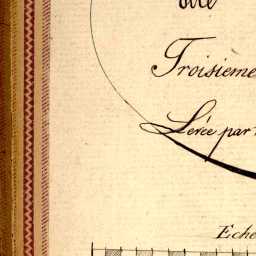 Troisieme
Levée par
Eche